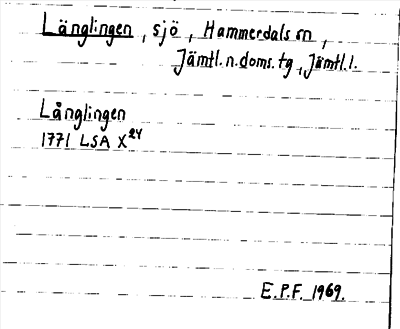 Länglingen, sjö, Hammerdals sn,
Jämtl.n.doms.tg, Jämtl.l.
Långlingen
1771 LSA X24
E.P.F. 1969.